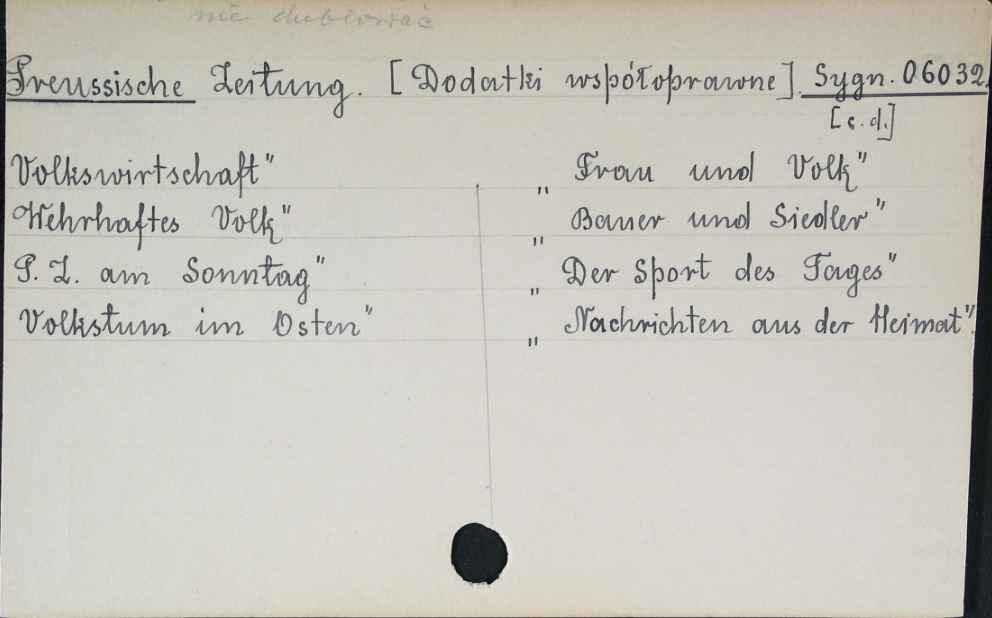 nie dublować
Preussische Zeitung. [Dodatki współoprawne]. Sygn. 06032.
[c.d.]
Volkswirtschaft"
Wehrhaftes Volk"
P. Z. am Sonntag"
Volkstum im Osten"
„ Frau und Volk"
„ Bauer und Siedler"
„ Der Sport des Tages"
„ Nachrichten aus der Heimat".